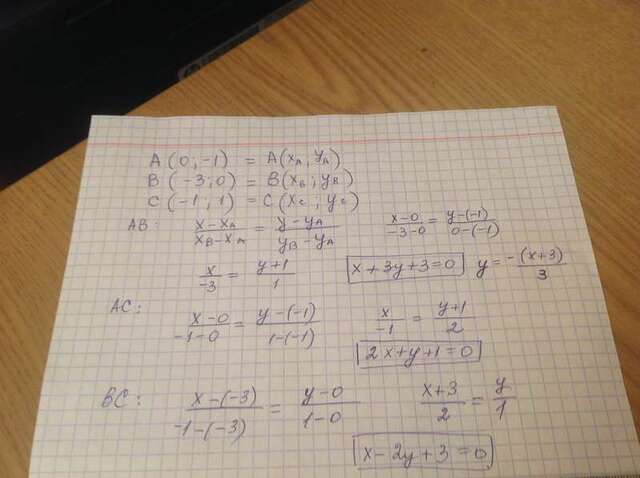 A (0; -1) = A (xA; yA)
B (-3; 0) = B (xB; yB)
C (-1; 1) = C (xC; yC)
AB: (x - xA)/(xB - xA) = (y - yA)/(yB - yA) (x - 0)/(-3 - 0) = (y - (-1))/(0 - (-1))
x/-3 = (y + 1)/1 x + 3y + 3 = 0 y = -(x + 3)/3
AC: (x - 0)/(-1 - 0) = (y - (-1))/(1 - (-1)) x/-1 = (y + 1)/2
2x + y + 1 = 0
BC: (x - (-3))/(-1 - (-3)) = (y - 0)/(1 - 0) (x + 3)/2 = y/1
x - 2y + 3 = 0